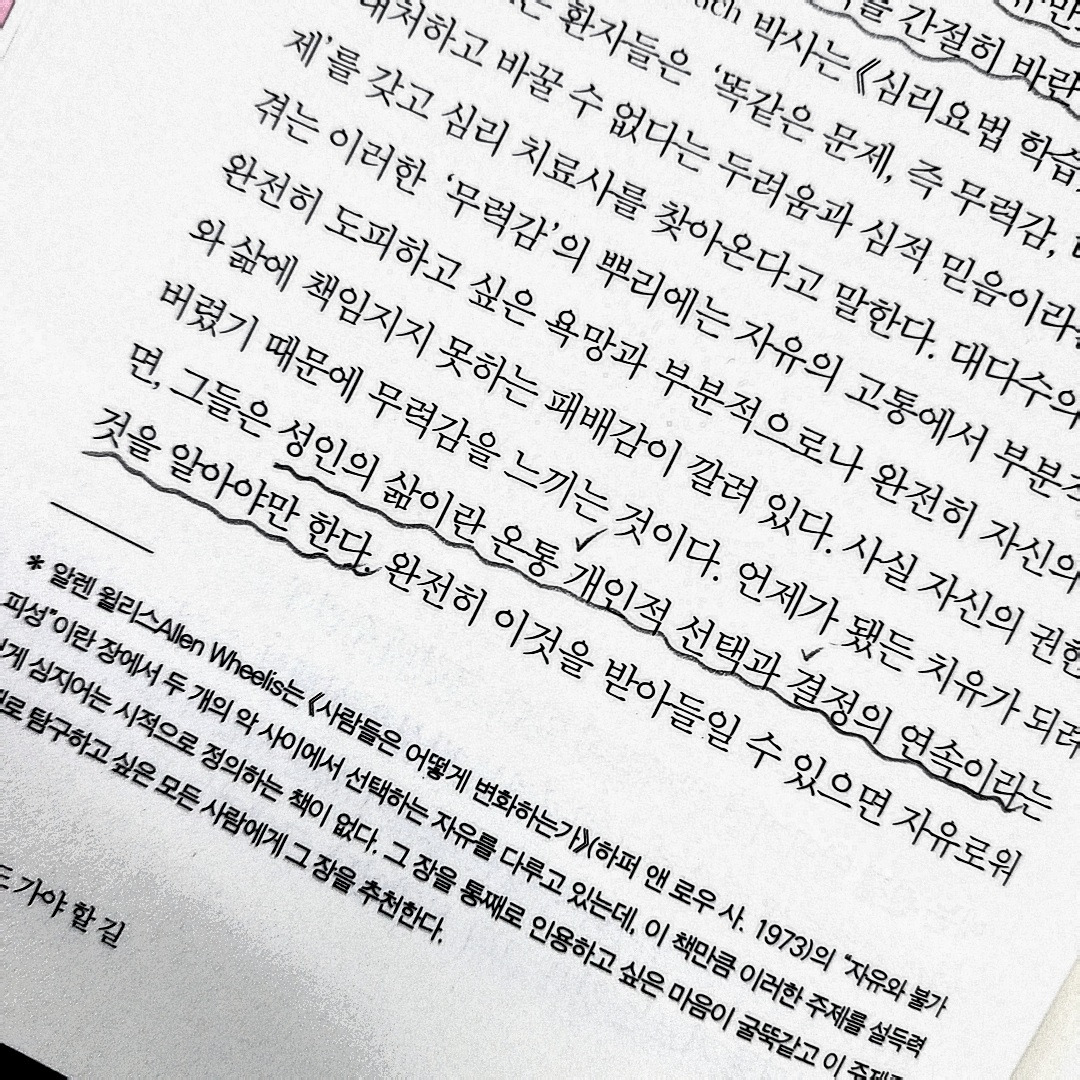 간절히 바란
박사는 《심리요법 학습
환자들은 ‘똑같은 문제, 즉 무력감,
대처하고 바꿀 수 없다는 두려움과 심적 믿음이라
제’를 갖고 심리 치료사를 찾아온다고 말한다. 대다수의
겪는 이러한 ‘무력감’의 뿌리에는 자유의 고통에서
완전히 도피하고 싶은 욕망과 부분적으로나 완전히 자신의
와 삶에 책임지지 못하는 패배감이 깔려 있다. 사실 자신의 권한
버렸기 때문에 무력감을 느끼는 것이다. 언제가 됐든 치유가 되려
면, 그들은 성인의 삶이란 온통 개인적 선택과 결정의 연속이라는
것을 알아야만 한다. 완전히 이것을 받아들일 수 있으면 자유로워
* 알렌 윌리스Allen Wheelis는 《사람들은 어떻게 변화하는가》(하퍼 앤 로우 사. 1973)의 “자유와 불가
피성”이란 장에서 두 개의 악 사이에서 선택하는 자유를 다루고 있는데, 이 책만큼 이러한 주제를 설득력
심지어는 시적으로 정의하는 책이 없다. 그 장을 통째로 인용하고 싶은 마음이 굴뚝같고 이
탐구하고 싶은 모든 사람에게 그 장을 추천한다.
가야 할 길